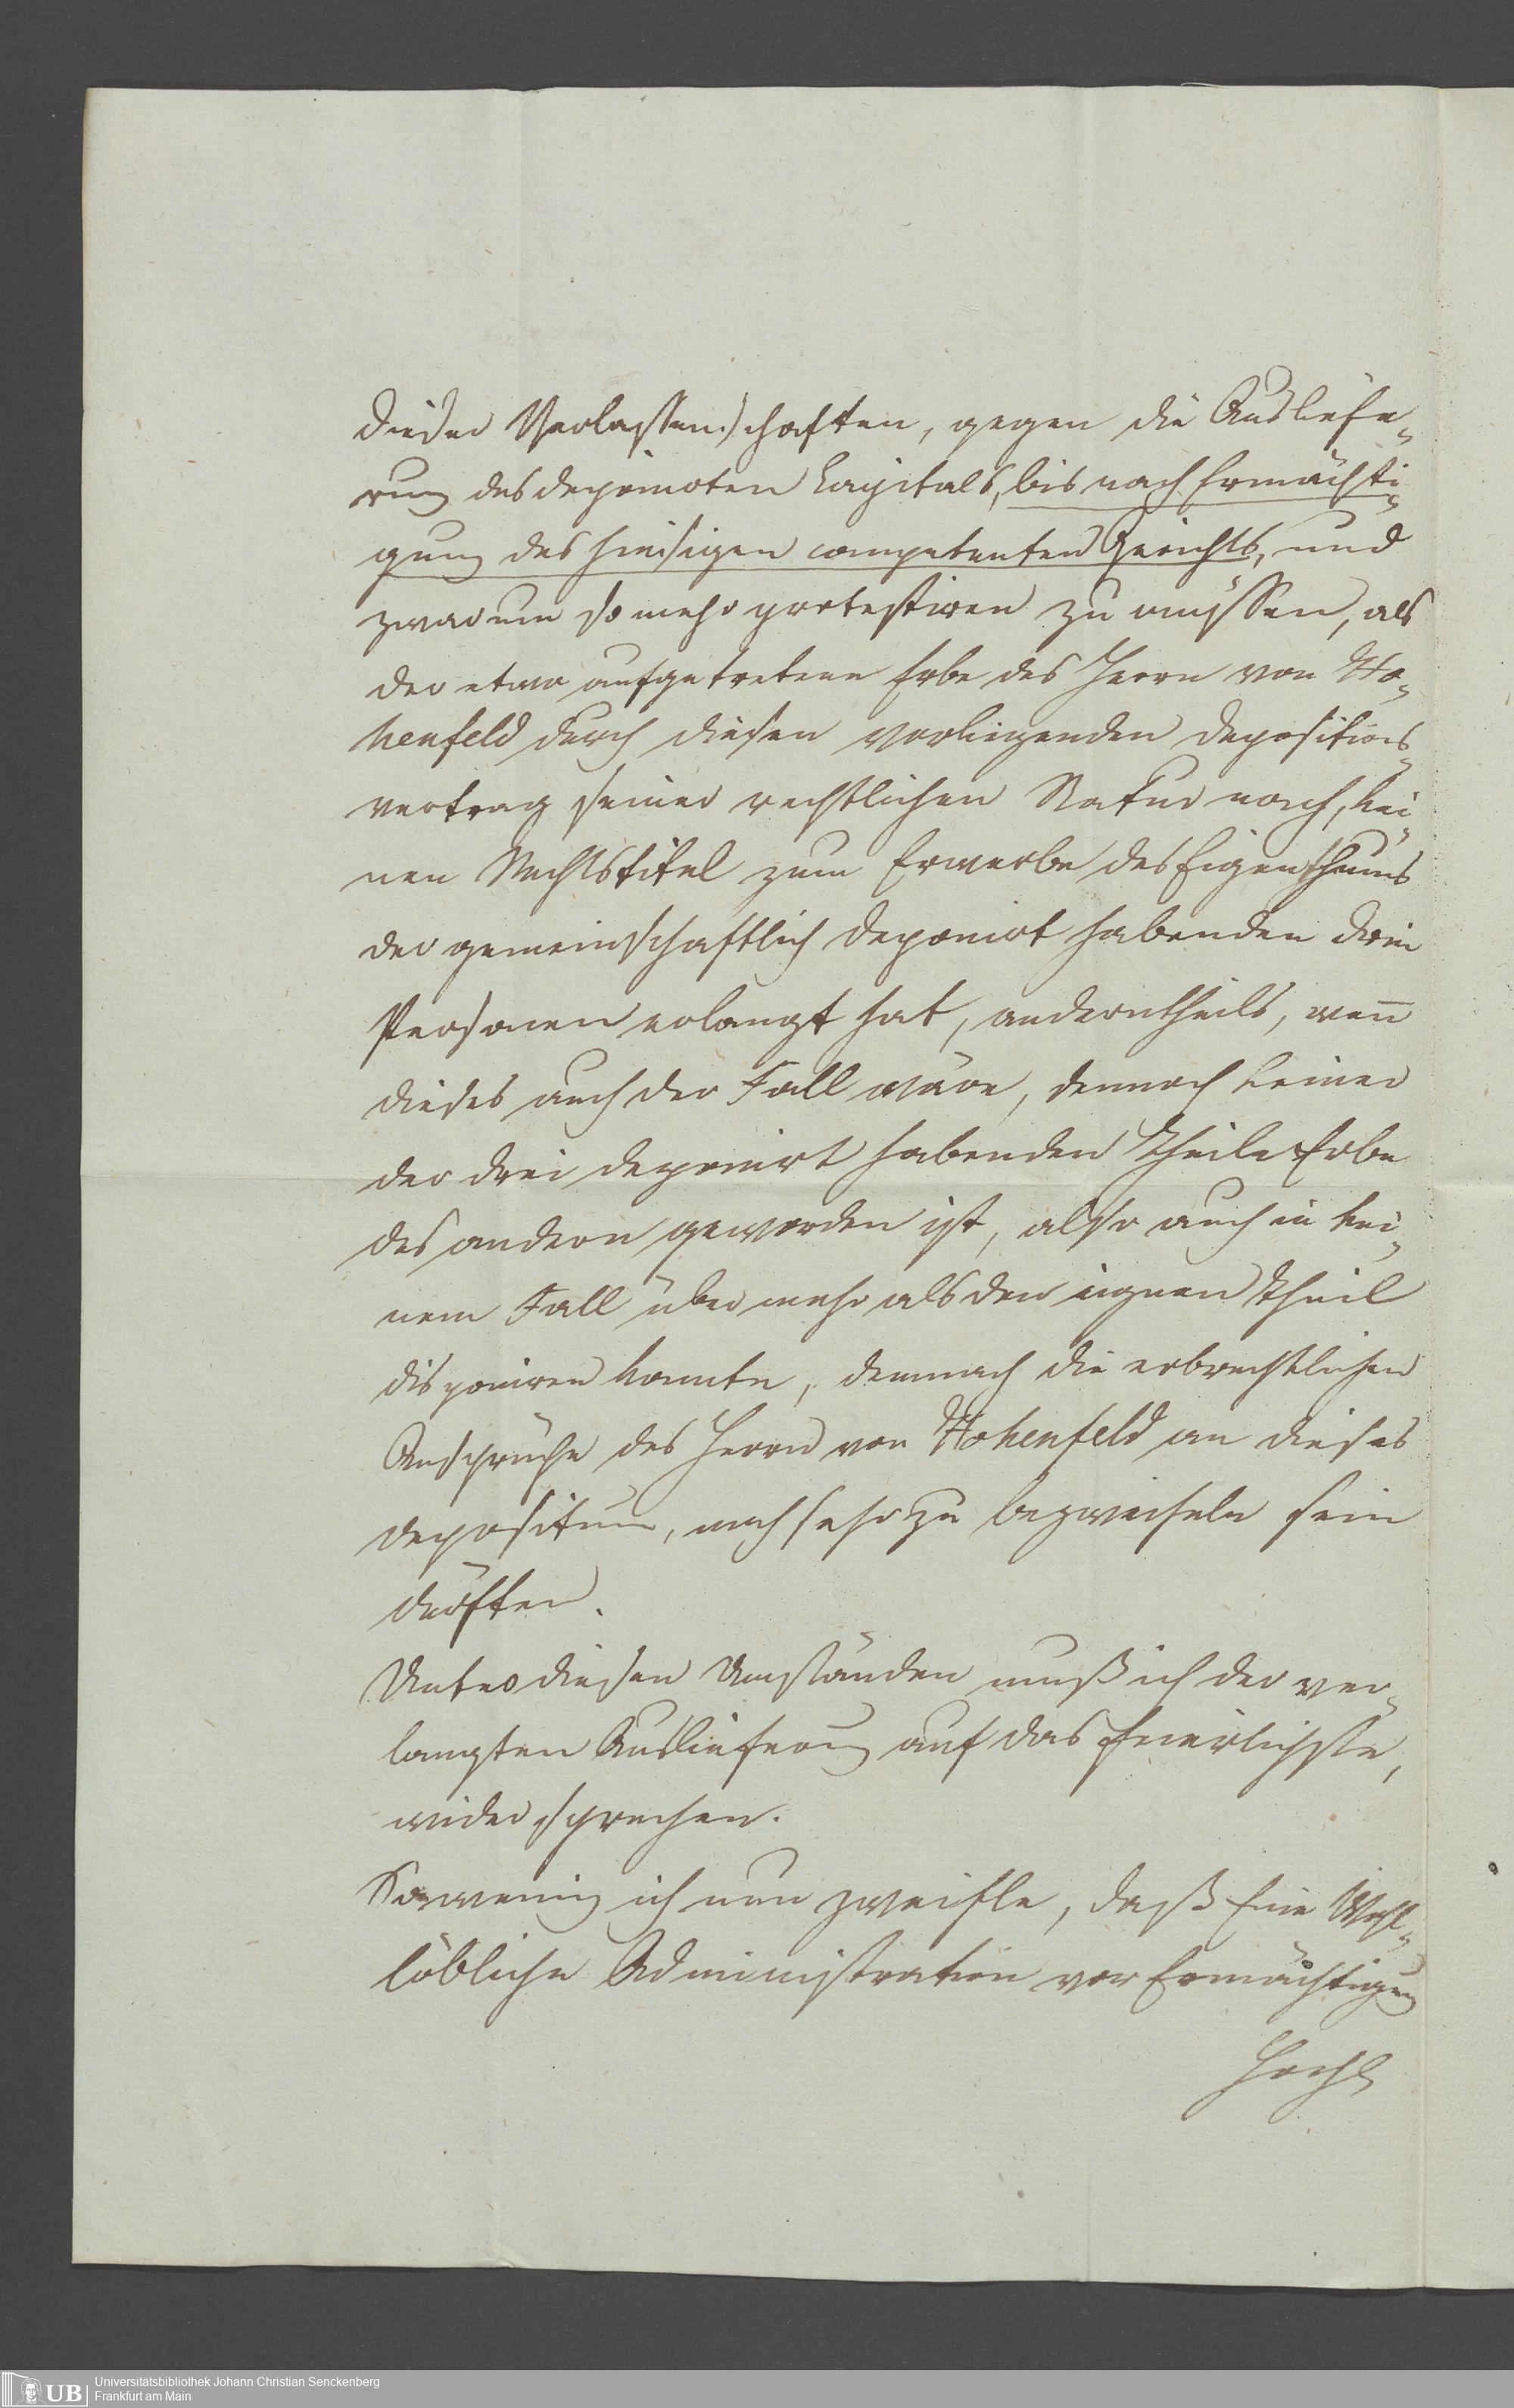 dieser Verlassenschaften, gegen die Ausliefe-
rung des deponirten Capitals, bis nach Ermächti-
gung des hiesigen competenten Gerichts, und
zwar um so mehr protestiren zu müssen, als
der etwa aufgetretene Erbe des Herrn von Ho-
henfeld durch diesen vorliegenden Depositions-
vertrag seiner rechtlichen Natur nach, kei-
nen Rechtstitel zum Erwerbe des Eigenthums
der gemeinschaftlich deponirt habenden drei
Personen erlangt hat, anderntheils, wenn
dieses auch der Fall wäre, dennoch keiner
der drei deponirt habenden Theile Erbe
des andern geworden ist, also auch in kei-
nem Fall über mehr als den eignen Theil
disponiren konnte, demnach die erbrechtlichen
Ansprüche des Herrn von Hohenfeld an dieses
Depositum, noch sehr zu bezweifeln sein
dürften.
Unter diesen Umständen muß ich der ver-
langten Auslieferung auf das feierlichste,
widersprechen.
So wenig ich nun zweifle, daß Eine Wohl-
löbliche Administration vor Ermächtigung
UB
Universitätsbibliothek Johann Christian Senckenberg
Frankfurt am Main